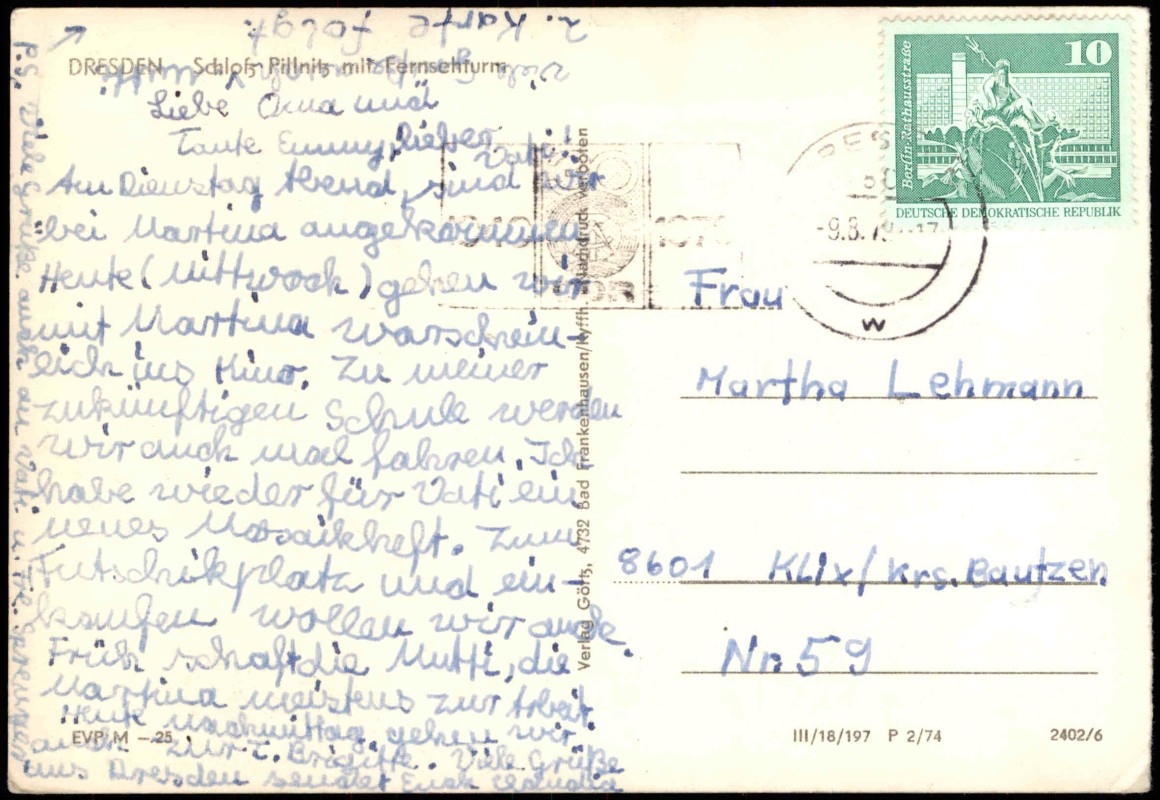 DRESDEN Schloß Pillnitz mit Fernsehturm
Liebe Oma und
Tante Emmy, lieber
Vati!
Am Dienstag Abend, sind wir
bei Martina angekommen
Heute (Mittwoch) gehen wir
mit Martina warschein-
lich ins Kino. Zu meiner
zukünftigen Schule werden
wir auch mal fahren. Ich
habe wieder für Vati ein
neues Mosaikheft. Zum
Futschikplatz und ein-
kaufen wollen wir auch.
Früh schafft die Mutti, die
Martina meistens zur Arbeit.
Heute nachmittag gehen wir
auch zur T. Brigitte. Viele Grüße
aus Dresden sendet Euch Claudia
P.S. Viele Grüße auch an Vati u.
2. Karte folgt
EVP M -25
Verlag Görtz, 4732 Bad Frankenhausen/Kyffh. Nachdruck verboten
1949
DDR
-9.8.79
W
10
Berlin, Rathausstraße
DEUTSCHE DEMOKRATISCHE REPUBLIK
Frau
Martha Lehmann
8601 Klix/Krs. Bautzen
Nr. 59
III/18/197 P 2/74
2402/6